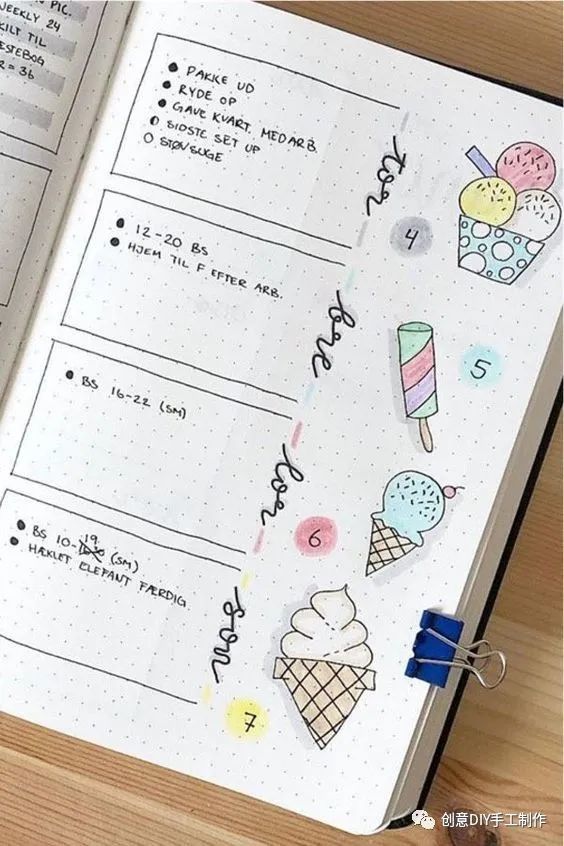 PIC.
WEEKLY 24
KILT TIL
R = 36
PAKKE UD
RYDE OP
GAVE KVART. MEDARB.
SIDSTE SET UP
STØVSUGE
tor
4
12-20 BS
HJEM TIL F EFTER ARB.
fre
5
BS 16-22 (SM)
lør
6
BS 10-19 (SM)
HÆKLET ELEFANT FÆRDIG
søn
7
创意DIY手工制作